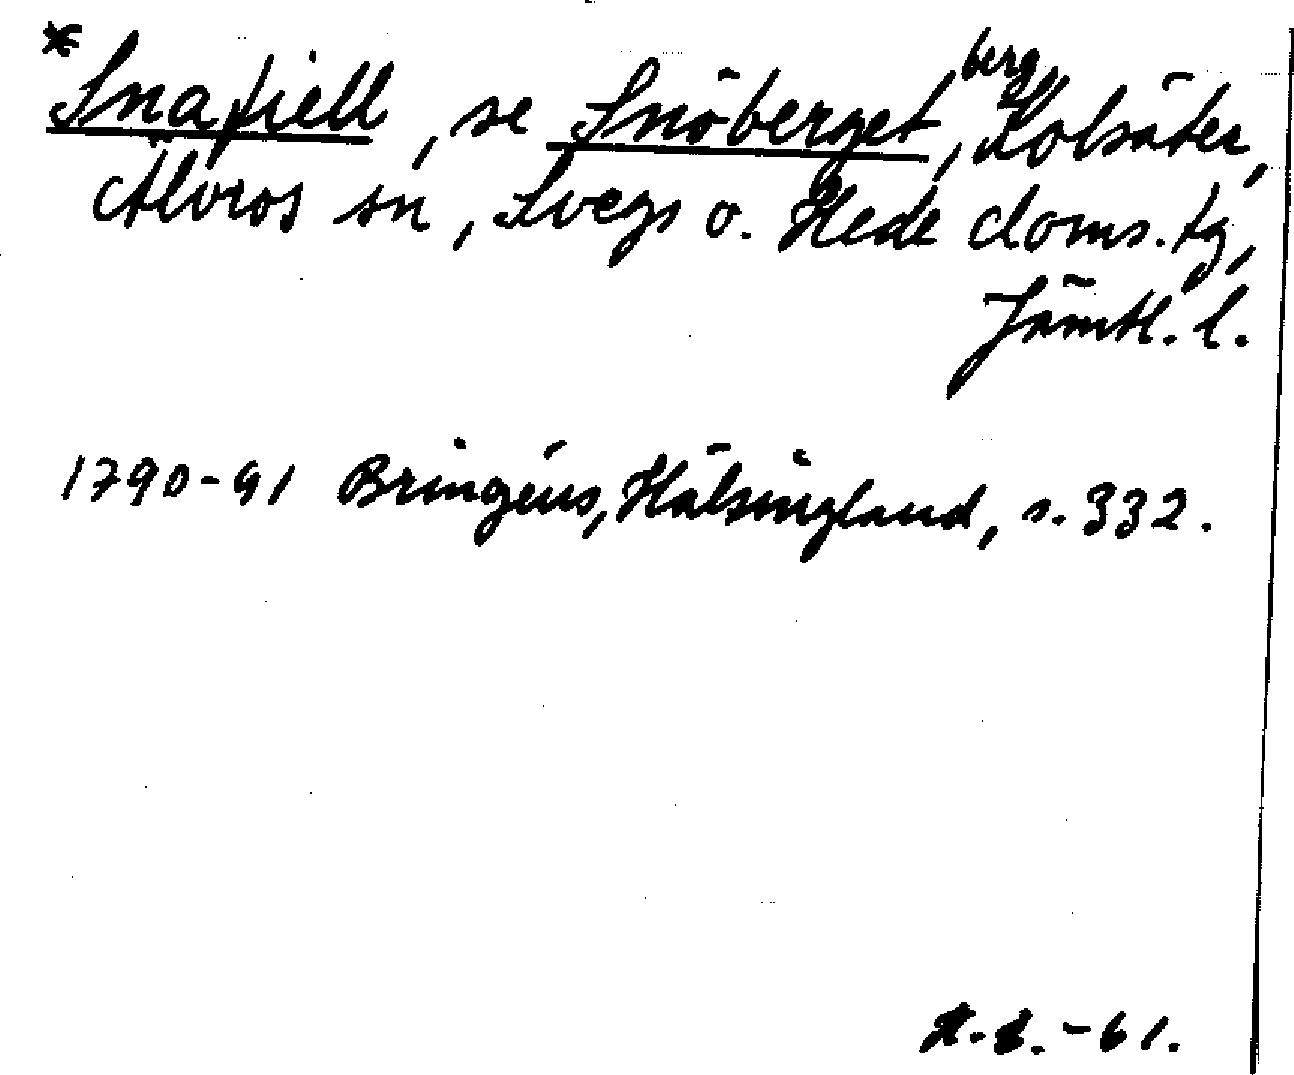 *Snafiell, se Snöberget, berg, Kolsäter,
Älvros sn, Svegs o. Hede doms. tg,
Jämtl. l.
1790-91 Bringéus, Hälsingland, s. 332.
-61.